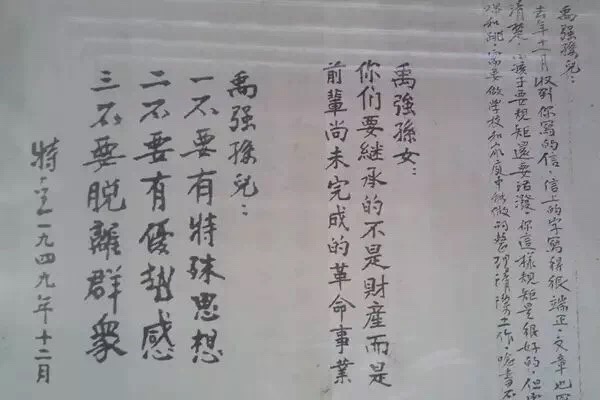 禹强孫兒：
去年十一月收到你寫的信，信上的字寫得很端正，文章也
清楚，小孩子要規矩還要活潑，你這樣規矩是很好的，但
和跳，需要做學校和家庭中能做的整理清潔工作，唸書不
禹強孫女：
你们要継承的不是財產而是
前輩尚未完成的革命事業
禹强孫兒：
一不要有特殊思想
二不要有優越感
三不要脱離群衆
特立一九四九年十二月